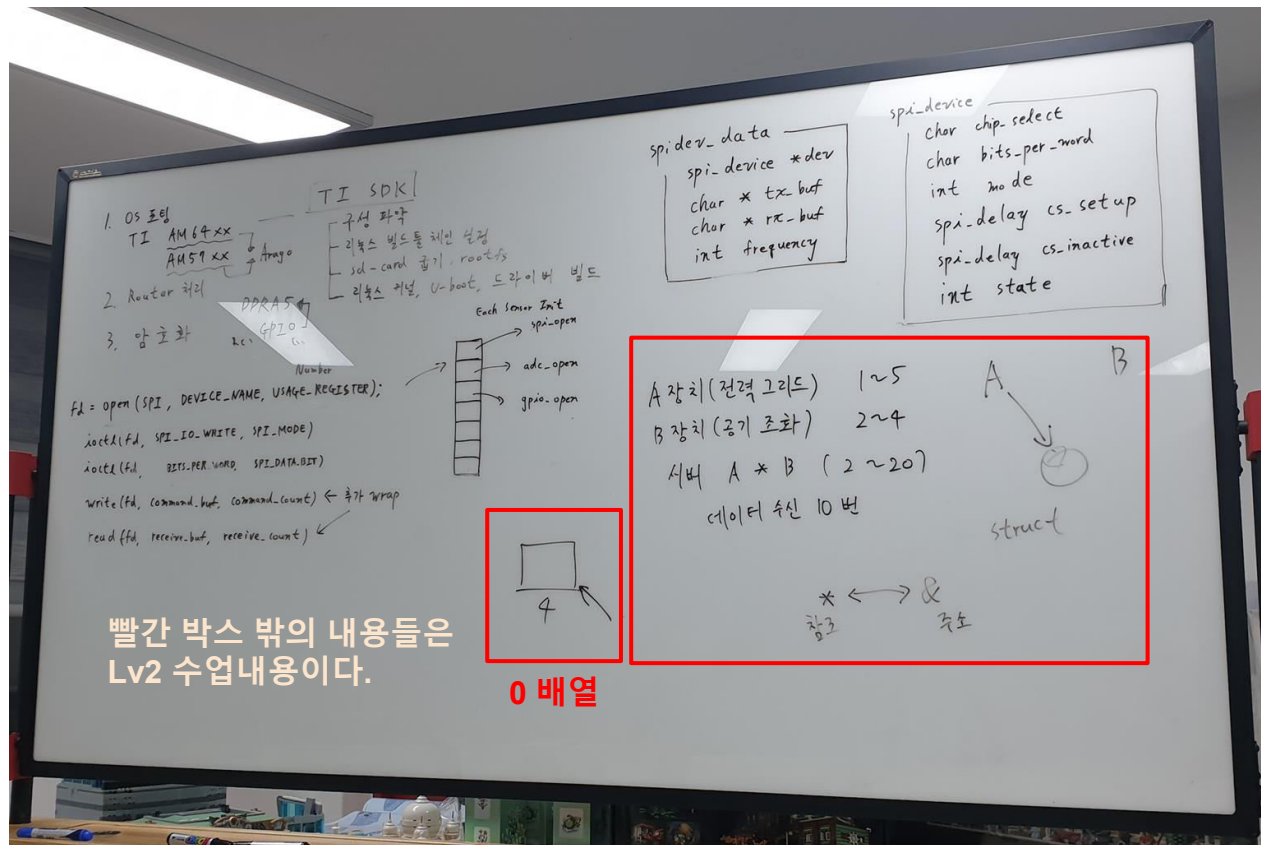 TI SDK
1. OS 포팅
TI AM64xx
AM57xx
Arago
구성 파악
리눅스 빌드툴 체인 설정
sd-card 굽기, rootfs
리눅스 커널, U-boot, 드라이버 빌드
2. Router 처리
3. 암호화
GPIO
Each Sensor Init
spi_open
adc_open
gpio_open
Number
fd = open (SPI, DEVICE_NAME, USAGE_REGISTER);
ioctl(fd, SPI_IO_WRITE, SPI_MODE)
ioctl(fd, BITS_PER_WORD, SPI_DATA_BIT)
write(fd, command_buf, command_count) ← 추가 wrap
read(fd, receive_buf, receive_count)
spidev_data
spi_device *dev
char * tx_buf
char * rx_buf
int frequency
spi_device
char chip_select
char bits_per_word
int mode
spi_delay cs_setup
spi_delay cs_inactive
int state
A 장치(전력 그리드) 1~5
B 장치(공기 조화) 2~4
서버 A * B (2~20)
데이터 수신 10번
A B
struct
* ↔ &
참조 주소
4
0 배열
빨간 박스 밖의 내용들은
Lv2 수업내용이다.